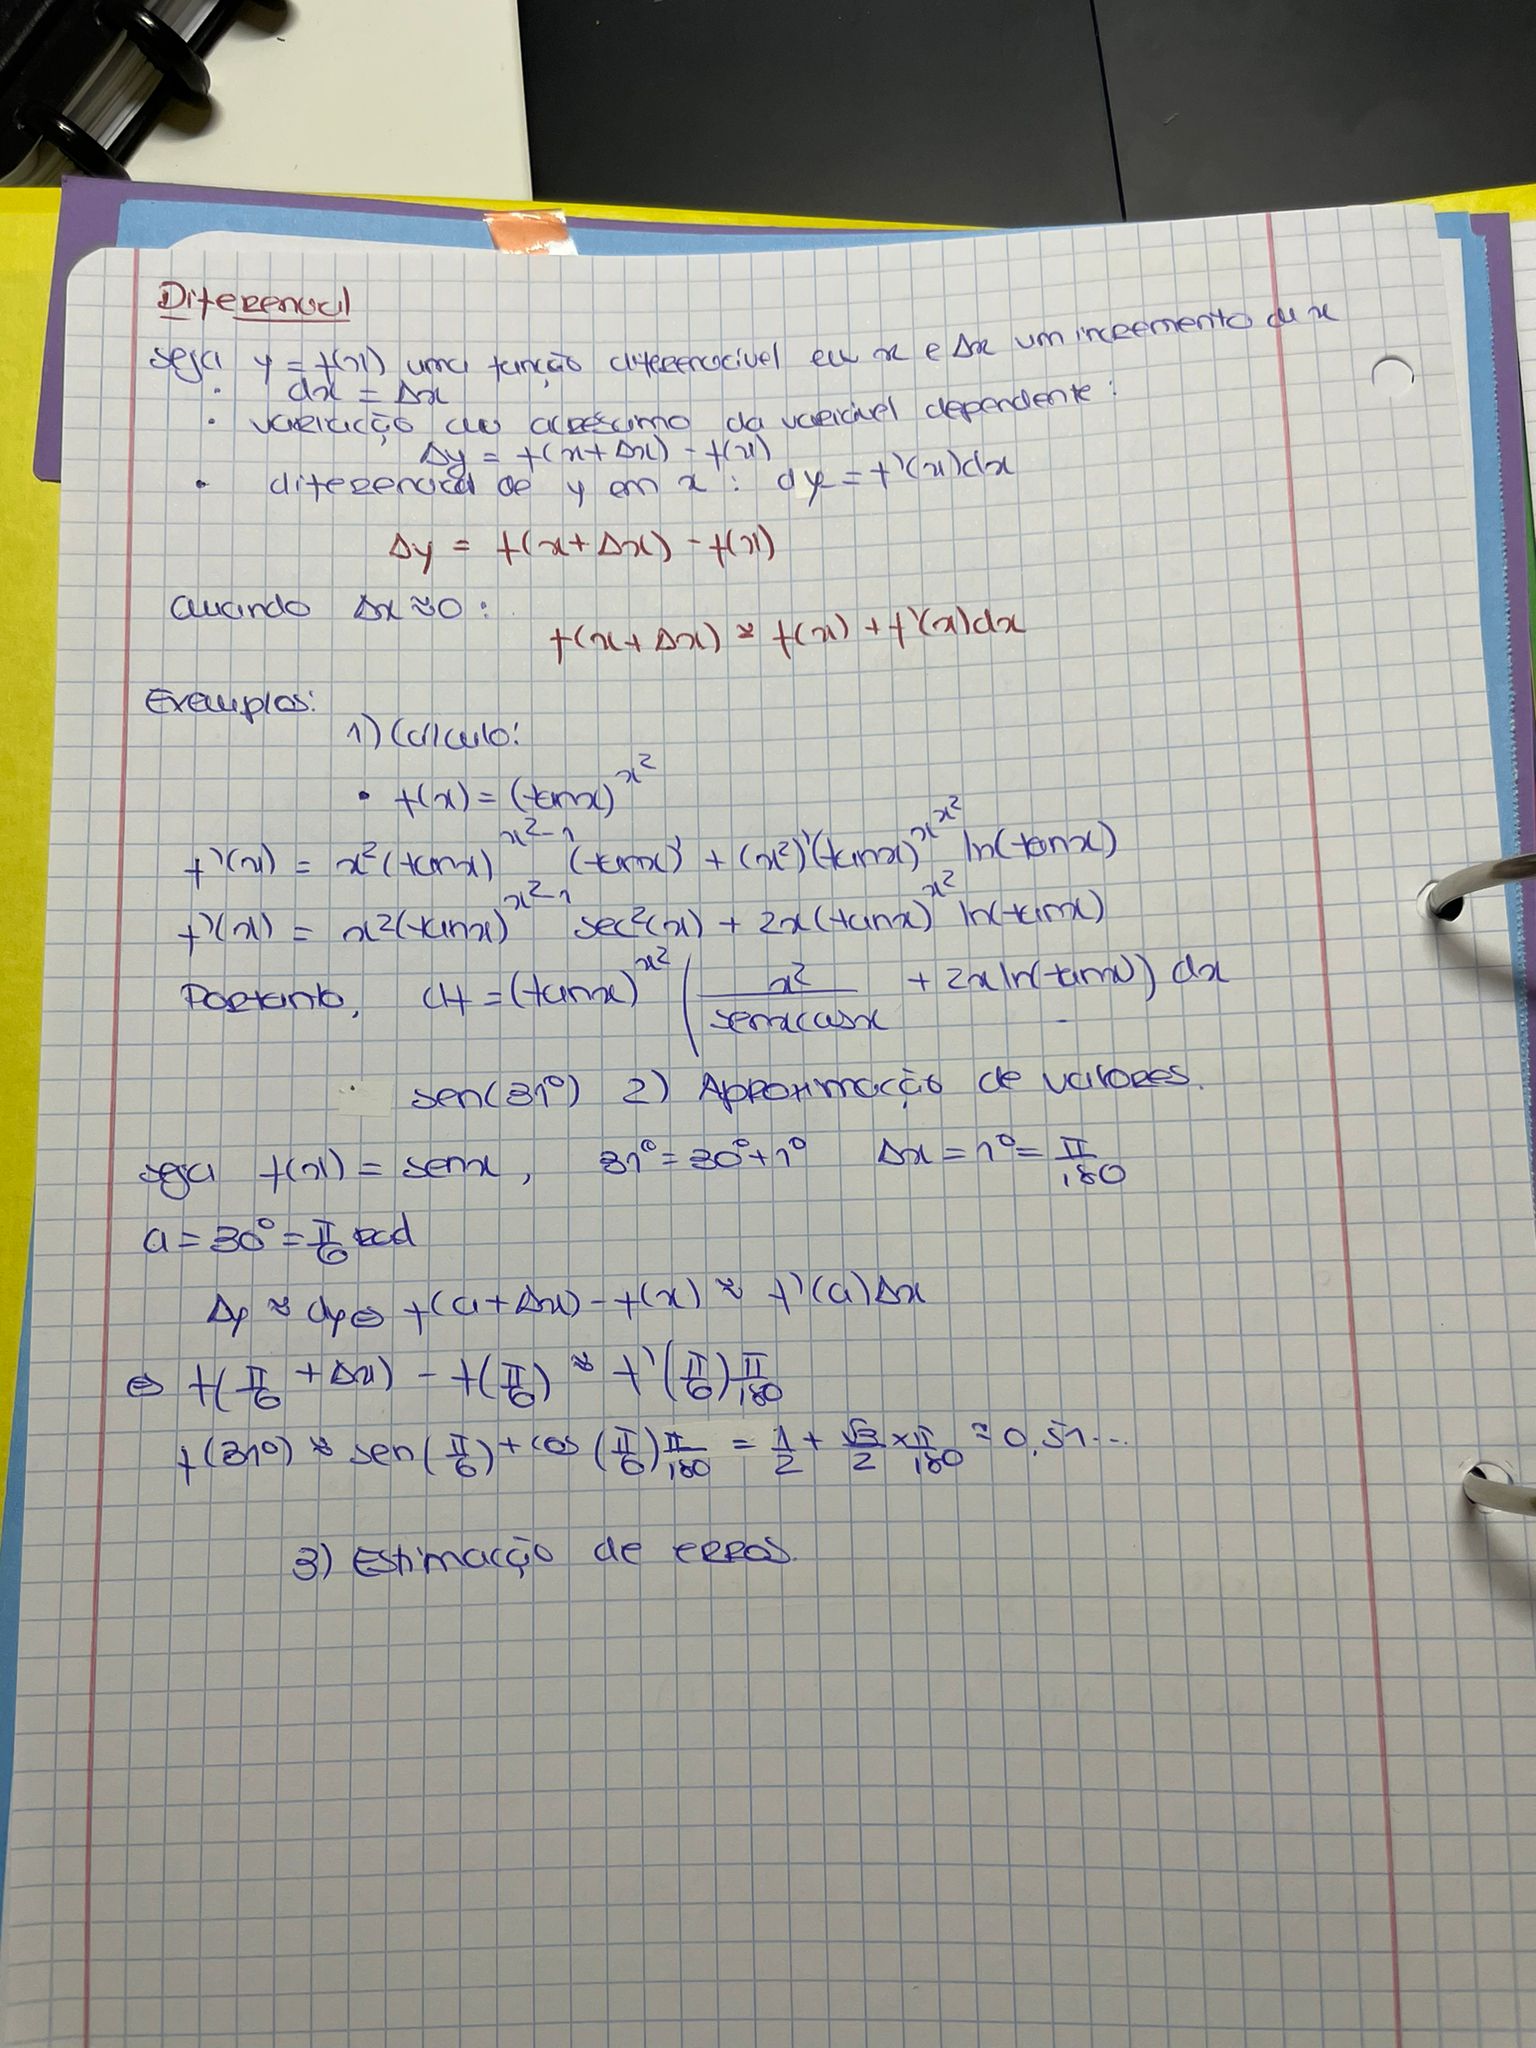 Diferencial
Seja y = f(x) uma função diferenciável em x e Δx um incremento de x
• dx = Δx
• variação do acréscimo da variável dependente:
Δy = f(x+Δx) - f(x)
• diferencial de y em x: dy = f'(x)dx
Δy = f(x+Δx) - f(x)
Quando Δx ≈ 0:
f(x+Δx) ≈ f(x) + f'(x)dx
Exemplos:
1) Cálculo:
• f(x) = (tanx)^x²
f'(x) = x²(tanx)^x²-1 (tanx)' + (x²)'(tanx)^x^x² ln(tanx)
f'(x) = x²(tanx)^x²-1 sec²(x) + 2x(tanx)^x² ln(tanx)
Portanto, df = (tanx)^x² (x²/senxcosx + 2xln(tanx)) dx
• sen(31°) 2) Aproximação de valores.
Seja f(x) = senx, 31° = 30°+1° Δx = 1° = π/180
a = 30° = π/6 rad
Δy ≈ dy ⇔ f(a+Δx) - f(x) ≈ f'(a)Δx
⇔ f(π/6 + Δx) - f(π/6) ≈ f'(π/6) π/180
f(31°) ≈ sen(π/6) + cos(π/6) π/180 = 1/2 + √3/2 × π/180 ≈ 0,51...
3) Estimação de erros.